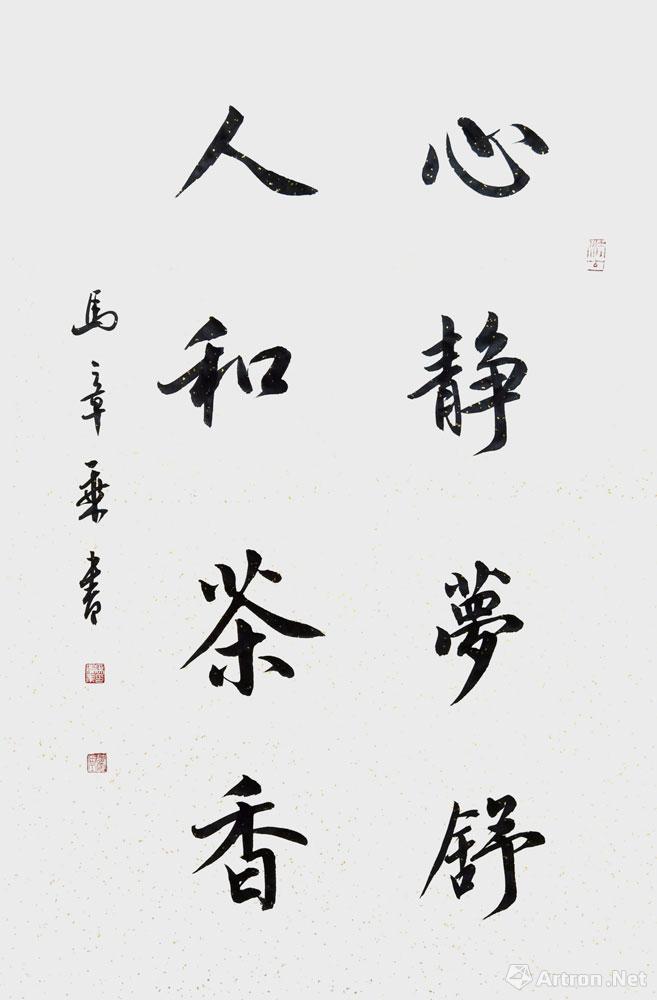 心靜夢舒
人和茶香
馬章乗書
Artron.Net